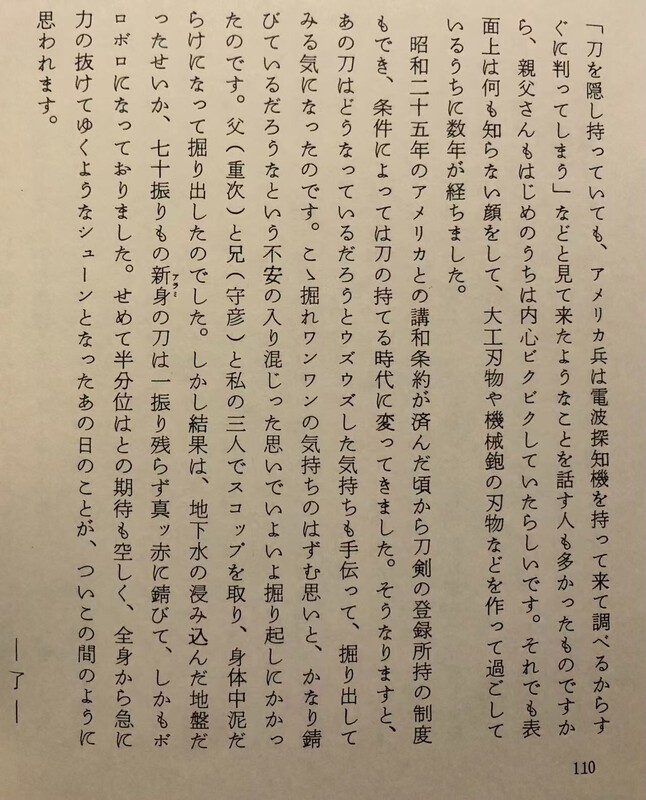 「刀を隠し持っていても、アメリカ兵は電波探知機を持って来て調べるからす
ぐに判ってしまう」などと見て来たようなことを話す人も多かったものですか
ら、親父さんもはじめのうちは内心ビクビクしていたらしいです。それでも表
面上は何も知らない顔をして、大工刃物や機械鉋の刃物などを作って過ごして
いるうちに数年が経ちました。
昭和二十五年のアメリカとの講和条約が済んだ頃から刀剣の登録所持の制度
もでき、条件によっては刀の持てる時代に変ってきました。そうなりますと、
あの刀はどうなっているだろうとウズウズした気持ちも手伝って、掘り出して
みる気になったのです。こゝ掘れワンワンの気持ちのはずむ思いと、かなり錆
びているだろうなという不安の入り混じった思いでいよいよ掘り起しにかかっ
たのです。父(重次)と兄(守彦)と私の三人でスコップを取り、身体中泥だ
らけになって掘り出したのでした。しかし結果は、地下水の浸み込んだ地盤だ
ったせいか、七十振りもの新身の刀は一振り残らず真ッ赤に錆びて、しかもボ
アラミ
ロボロになっておりました。せめて半分位はとの期待も空しく、全身から急に
力の抜けてゆくようなシューンとなったあの日のことが、ついこの間のように
思われます。
―了―
110